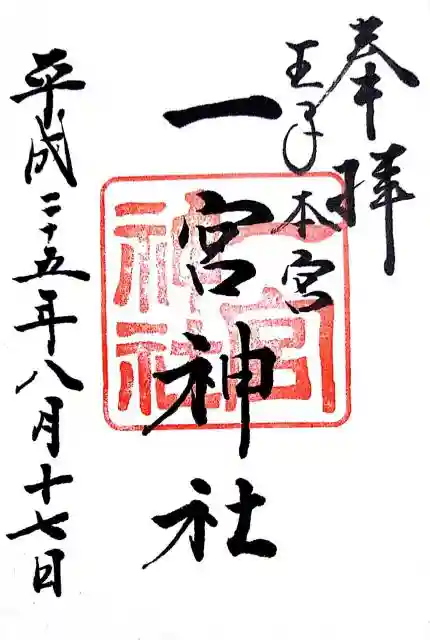 奉拝
王子本宮
一宮神社
一宮
神社
平成二十五年八月十七日